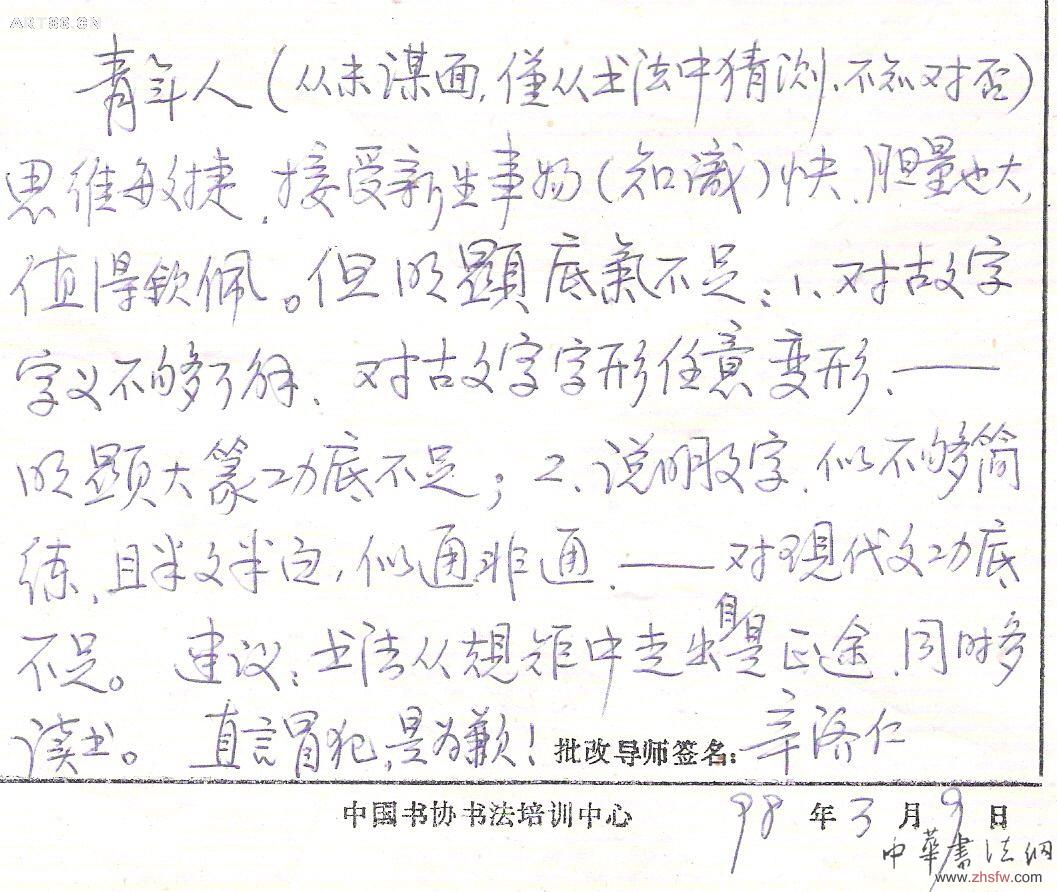 ART86.CN
青年人（从未谋面，僅从书法中猜测，不知对否）
思维敏捷，接受新生事物（知識）快、胆量也大，
值得钦佩。但明顯底氣不足：1、对古文字
字义不够了解、对古文字字形任意变形、——
明顯大篆功底不足；2、说明文字，似不够简
练，且半文半白，似通非通、——对现代文功底
不足。 建议：书法从規矩中走出自是正途，同时多
读书。 直言冒犯，是为歉！批改导师签名：辛济仁
中国书协书法培训中心 98年3月9日
中華書法網
www.zhsfw.com